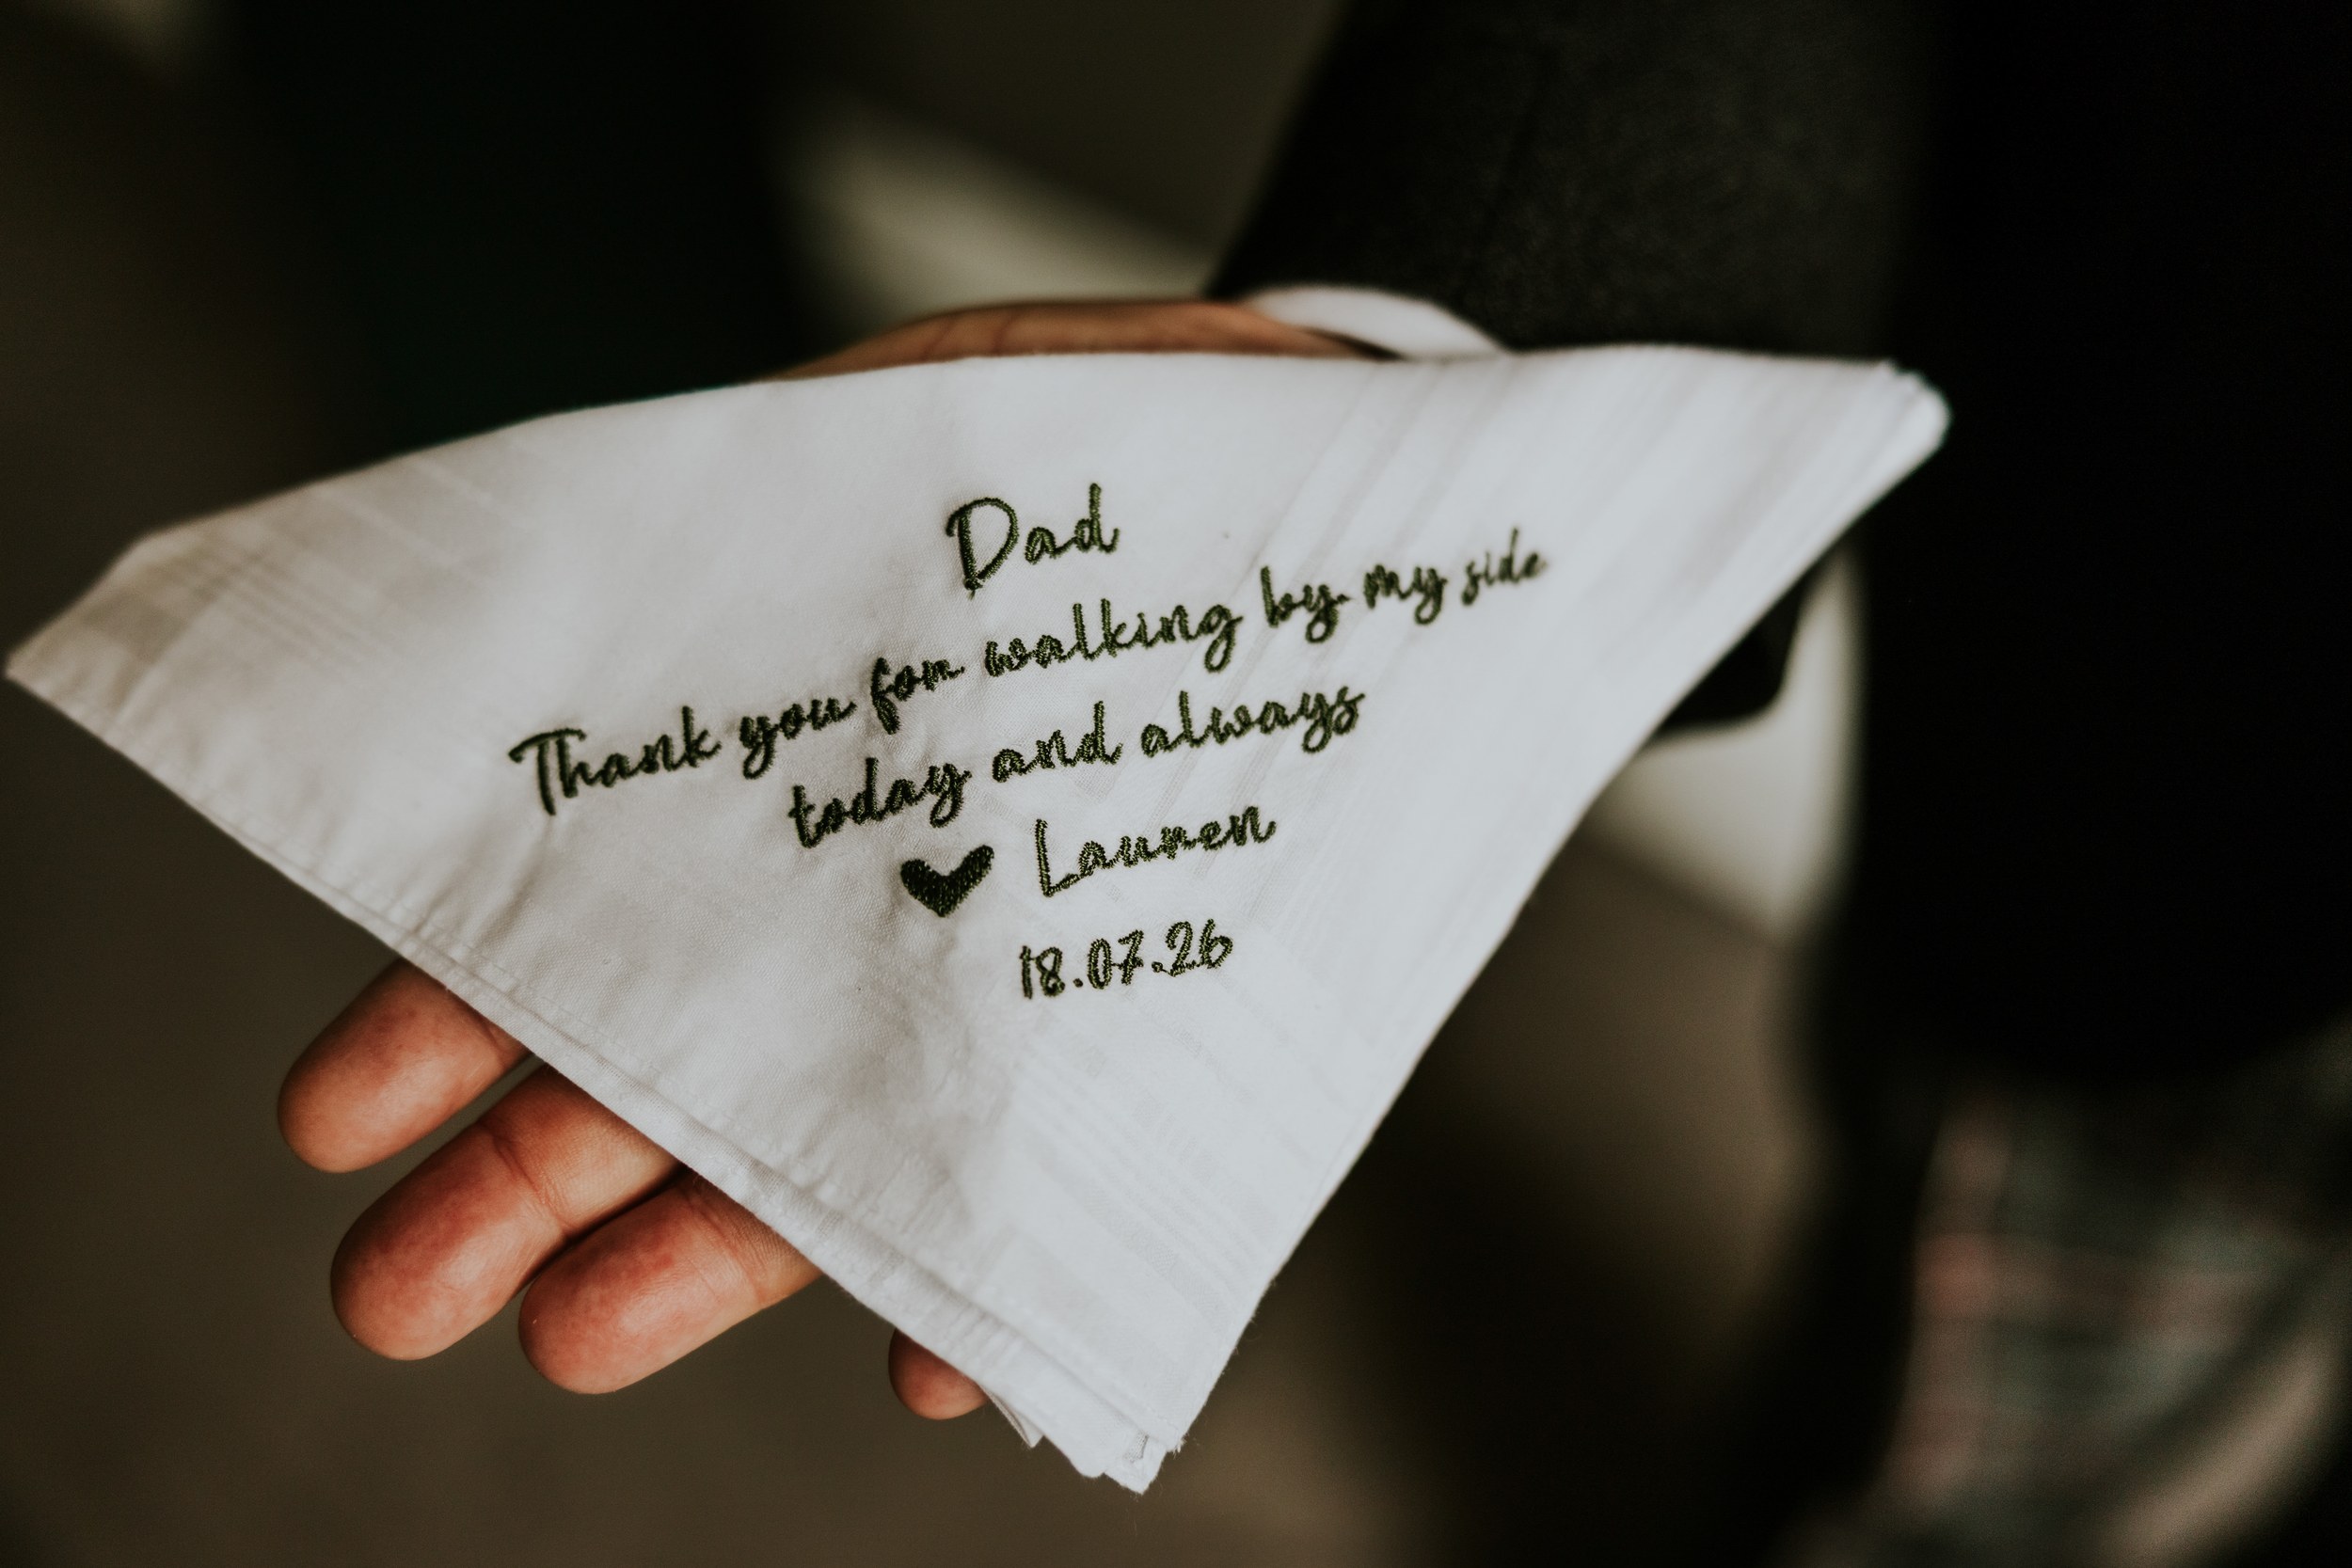 Dad
Thank you for walking by my side
today and always
♥ Lauren
18.07.26